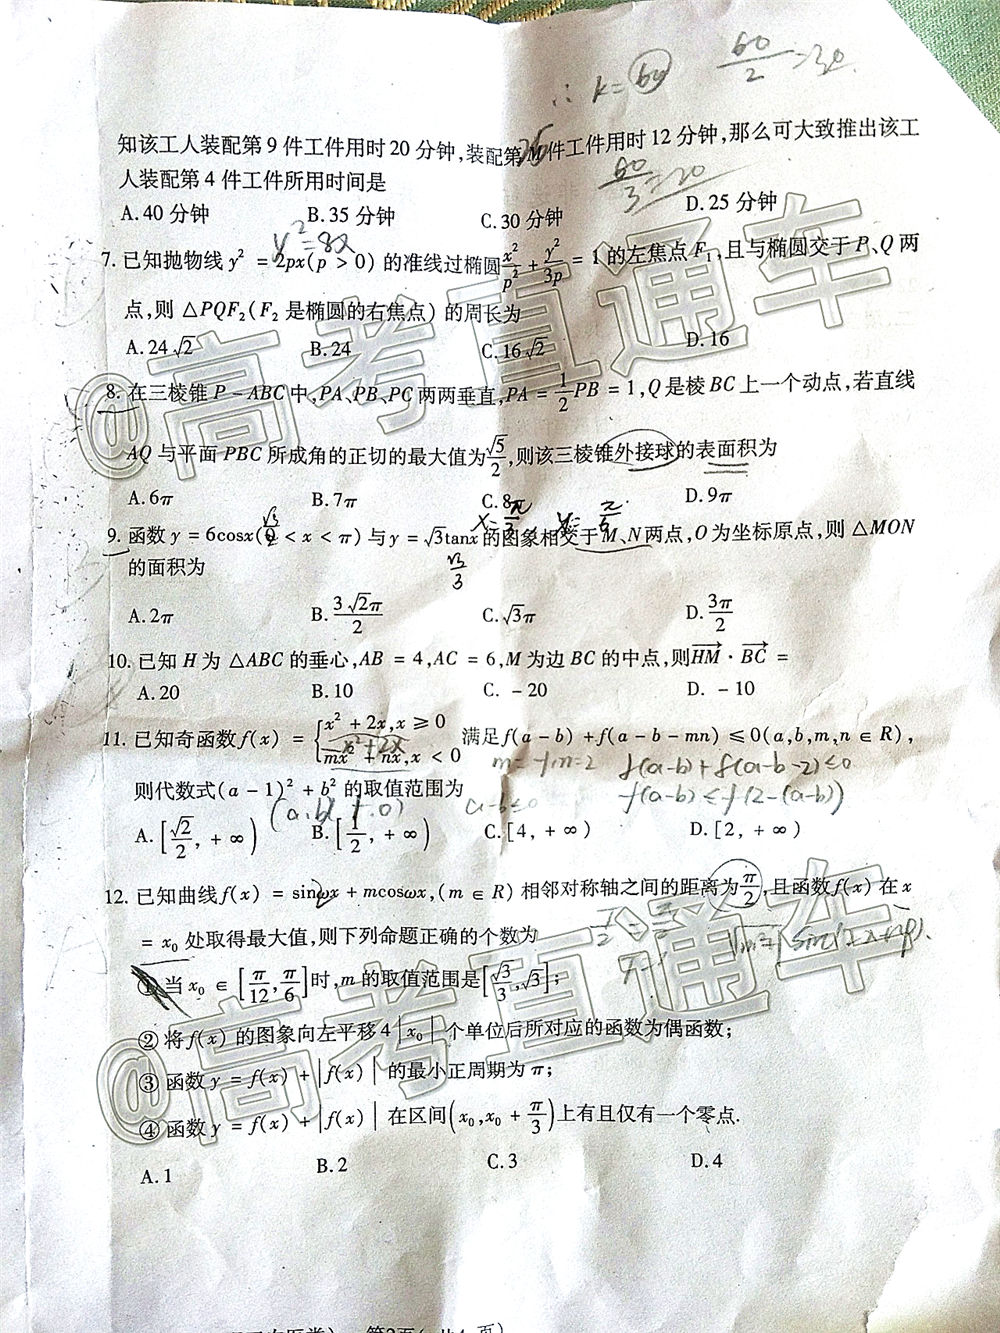 ∴ k=60 60/2=30
知该工人装配第 9 件工件用时 20 分钟,装配第 M 件工件用时 12 分钟,那么可大致推出该工
人装配第 4 件工件所用时间是
60/3=20
A. 40 分钟 B. 35 分钟 C. 30 分钟 D. 25 分钟
y²=8x
7. 已知抛物线 y² = 2px(p > 0) 的准线过椭圆 x²/p² + y²/3p = 1 的左焦点 F₁,且与椭圆交于 P、Q 两
点,则 △PQF₂(F₂ 是椭圆的右焦点) 的周长为
A. 24√2 B. 24 C. 16√2 D. 16
8. 在三棱锥 P - ABC 中,PA、PB、PC 两两垂直,PA = 1/2 PB = 1,Q 是棱 BC 上一个动点,若直线
AQ 与平面 PBC 所成角的正切的最大值为 √5/2,则该三棱锥外接球的表面积为
A. 6π B. 7π C. 8π D. 9π
9. 函数 y = 6cosx(0 < x < π) 与 y = √3tanx 的图象相交于 M、N 两点,O 为坐标原点,则 △MON
的面积为
√3/3
A. 2π B. 3√2π/2 C. √3π D. 3π/2
10. 已知 H 为 △ABC 的垂心,AB = 4,AC = 6,M 为边 BC 的中点,则 HM · BC =
A. 20 B. 10 C. - 20 D. - 10
11. 已知奇函数 f(x) = { x² + 2x,x ≥ 0 mx² + nx,x < 0 满足 f(a - b) + f(a - b - mn) ≤ 0(a,b,m,n ∈ R),
f(a-b)+f(a-b-2)≤0
则代数式 (a - 1)² + b² 的取值范围为
a-b≤0 f(a-b)≤f(2-(a-b))
A. [√2/2, + ∞) B. [1/2, + ∞) C. [4, + ∞) D. [2, + ∞)
12. 已知曲线 f(x) = sinωx + mcosωx,(m ∈ R) 相邻对称轴之间的距离为 π/2,且函数 f(x) 在 x
= x₀ 处取得最大值,则下列命题正确的个数为
① 当 x₀ ∈ [π/12, π/6] 时,m 的取值范围是 [√3/3, √3];
② 将 f(x) 的图象向左平移 4|x₀| 个单位后所对应的函数为偶函数;
③ 函数 y = f(x) + |f(x)| 的最小正周期为 π;
④ 函数 y = f(x) + |f(x)| 在区间 (x₀,x₀ + π/3) 上有且仅有一个零点.
A. 1 B. 2 C. 3 D. 4
@高考直通车
@高考直通车